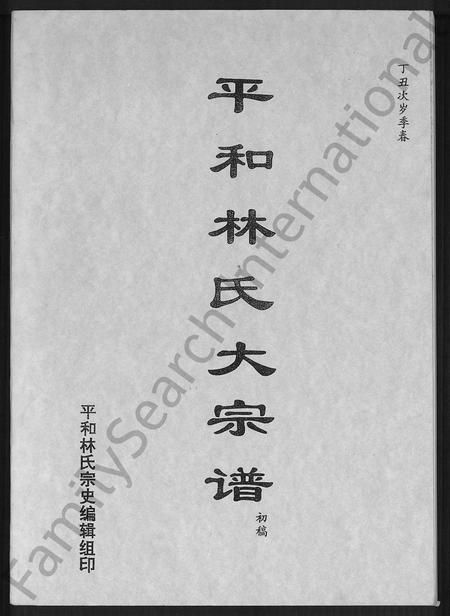 丁丑次岁季春
平和林氏大宗谱
初稿
平和林氏宗史编辑组印
FamilySearch International